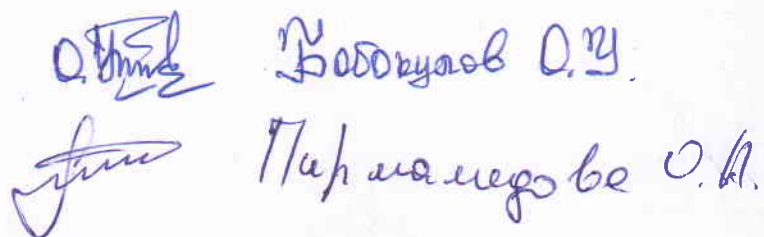 Бобокулов О.У.
Пирмамедова О.А.